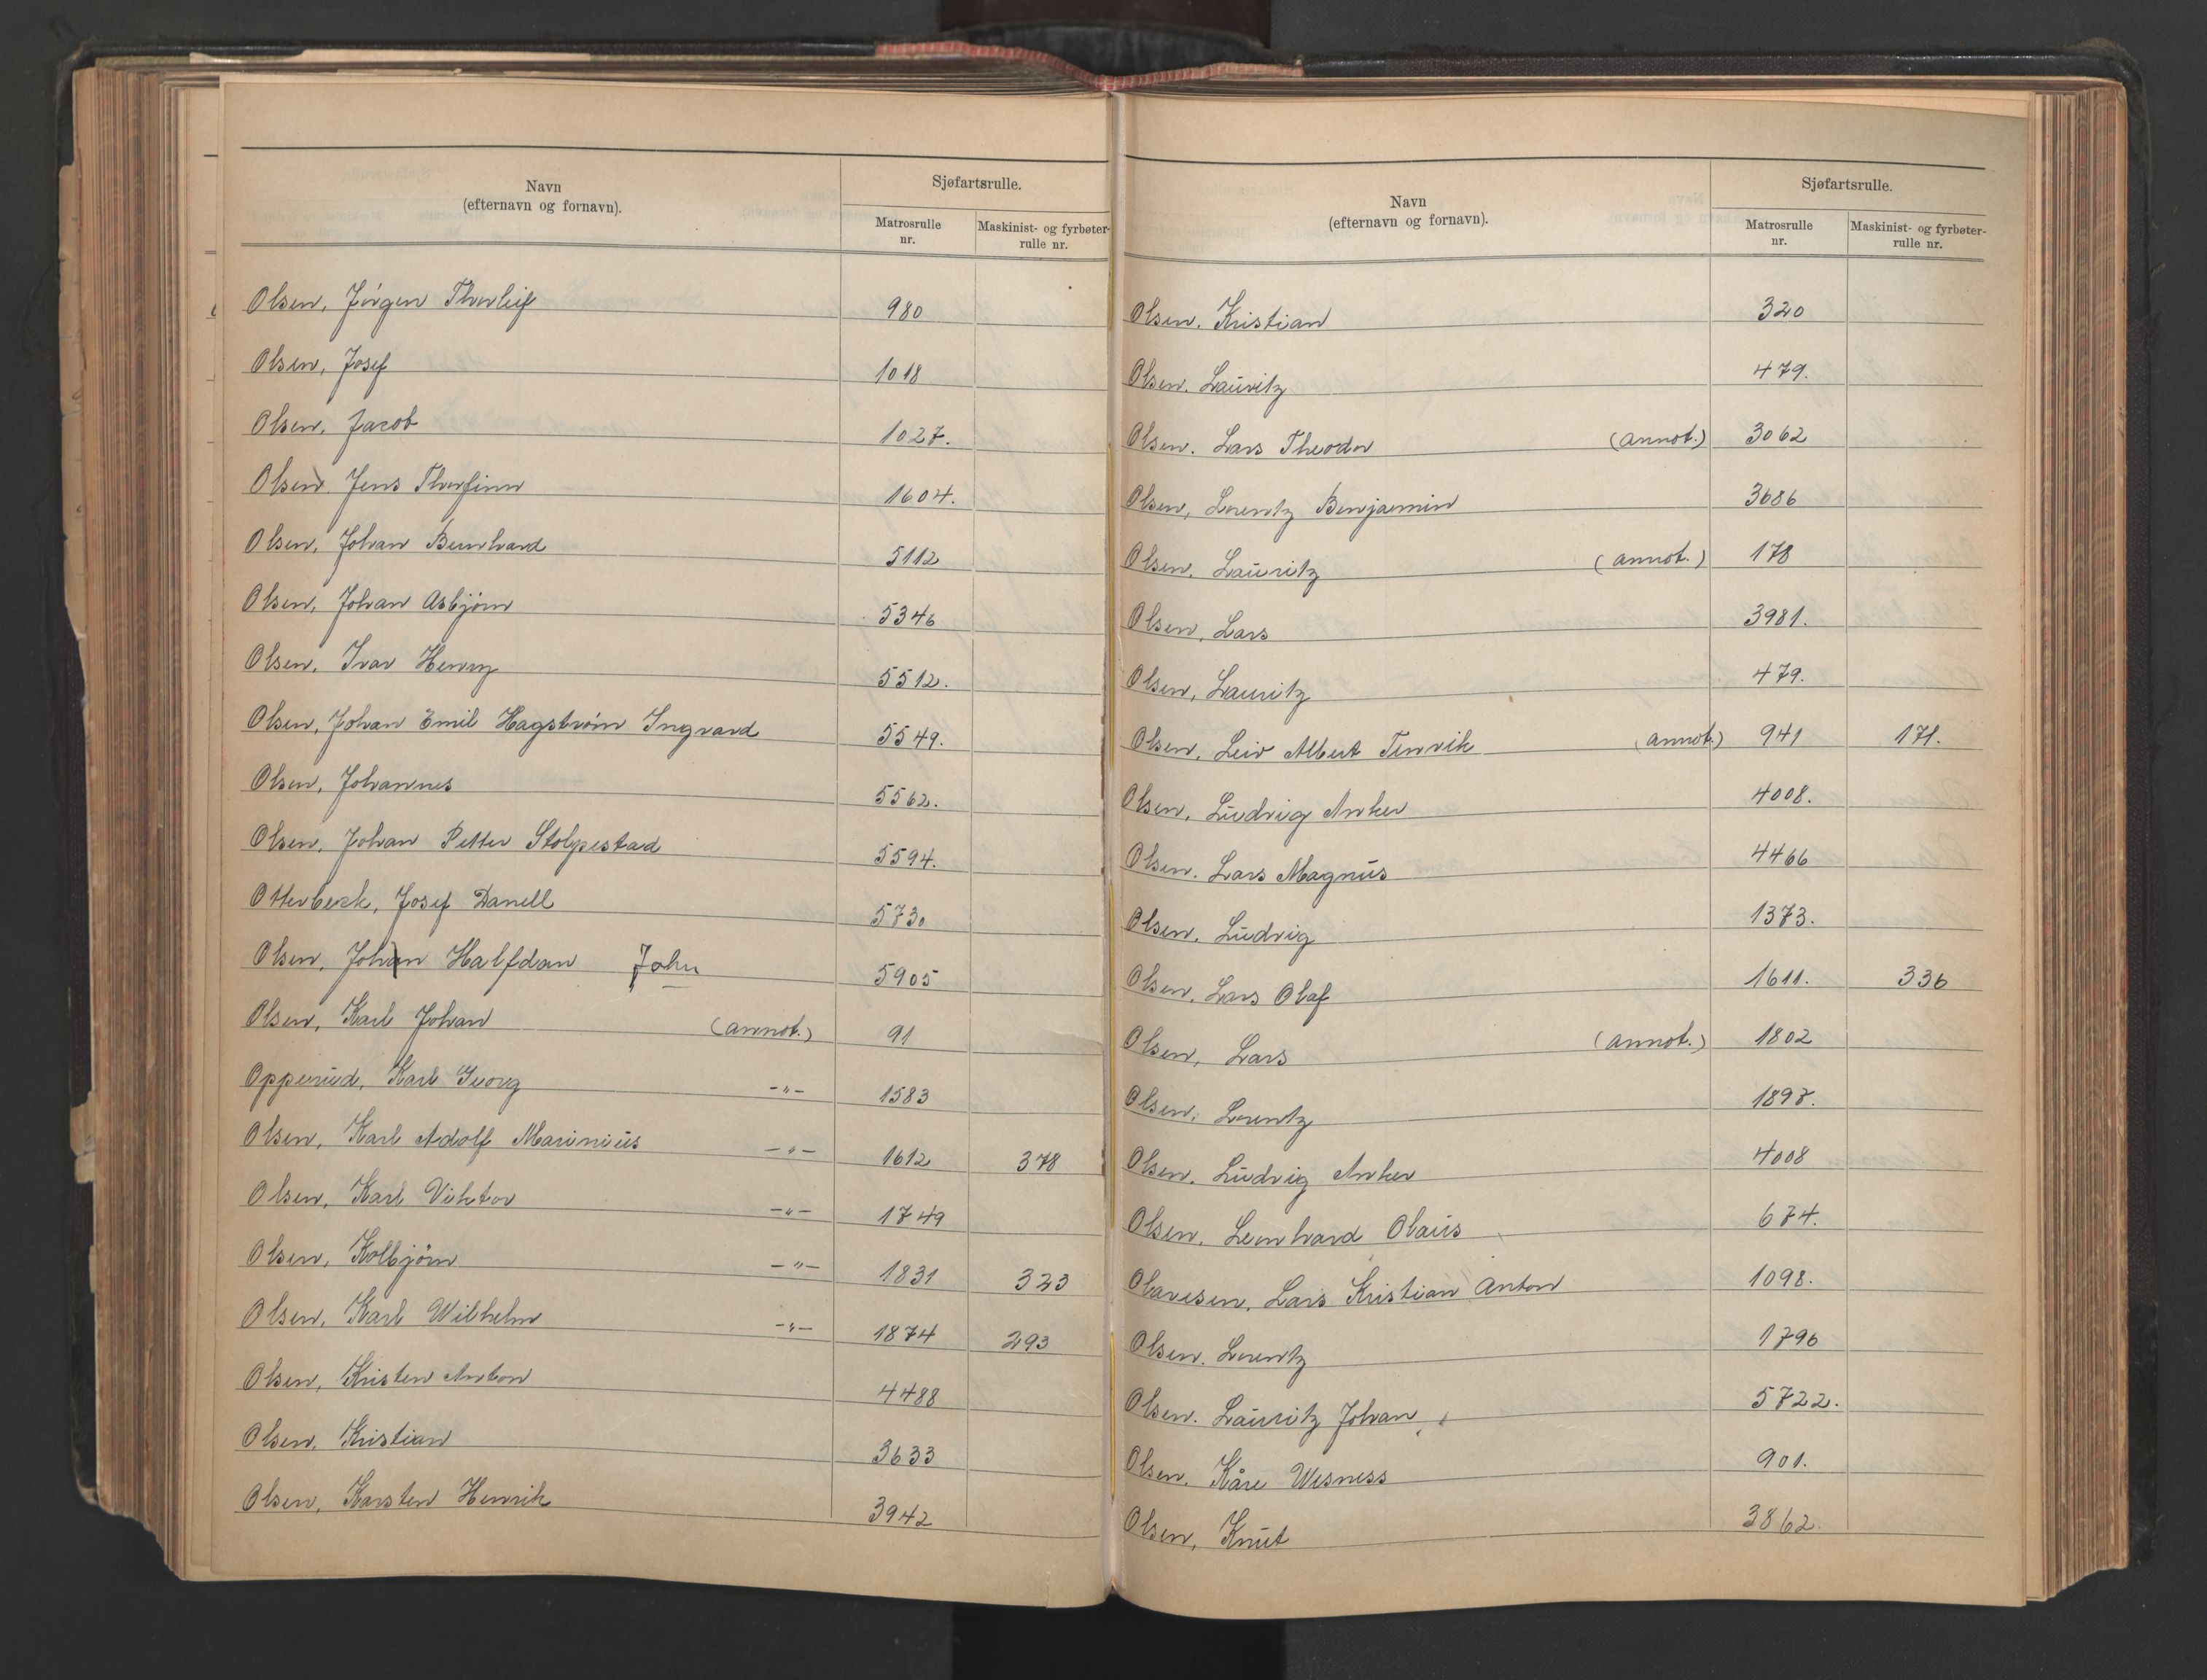 Navn
(efternavn og fornavn).
Sjøfartsrulle.
Matrosrulle nr.
Maskinist- og fyrbøter-rulle nr.
Olsen, Jörgen Thorleif 980
Olsen, Josef 1018
Olsen, Jacob 1027.
Olsen, Jens Thorfinn 1604.
Olsen, Johan Bernhard 5112
Olsen, Johan Asbjörn 5346
Olsen, Ivar Henry 5512.
Olsen, Johan Emil Hagström Ingvard 5549.
Olsen, Johannes 5562.
Olsen, Johan Petter Stolpestad 5594.
Otterbeck, Josef Danell 5730
Olsen, Johan Halfdan John 5905
Olsen, Karl Johan (annot.) 91
Opperud, Karl Georg -"- 1583
Olsen, Karl Adolf Marinius -"- 1612 378
Olsen, Karl Viktor -"- 1749
Olsen, Kolbjörn -"- 1831 323
Olsen, Karl Wilhelm -"- 1874 293
Olsen, Kristen Anton 4488
Olsen, Kristian 3633
Olsen, Karsten Henrik 3942
Navn
(efternavn og fornavn).
Sjøfartsrulle.
Matrosrulle nr.
Maskinist- og fyrbøter-rulle nr.
Olsen. Kristian 320
Olsen. Lauritz 479.
Olsen. Lars Theodor (annot.) 3062
Olsen, Lorentz Benjamin 3686
Olsen, Lauritz (annot.) 178
Olsen, Lars 3981.
Olsen, Lauritz 479.
Olsen, Leiv Albert Tenvik (annot.) 941 171.
Olsen, Ludvig Anker 4008.
Olsen. Lars Magnus 4466
Olsen. Ludvig 1373.
Olsen, Lars Olaf 1611. 336
Olsen, Lars (annot.) 1802
Olsen, Lorentz 1897.
Olsen. Ludvig Anker 4008
Olsen, Leonhard Olaus 674.
Olavesen, Lars Kristian Anton 1098.
Olsen. Lorentz 1796
Olsen. Lauritz Johan 5722.
Olsen, Kåre Wesness 901.
Olsen, Knut 3862.